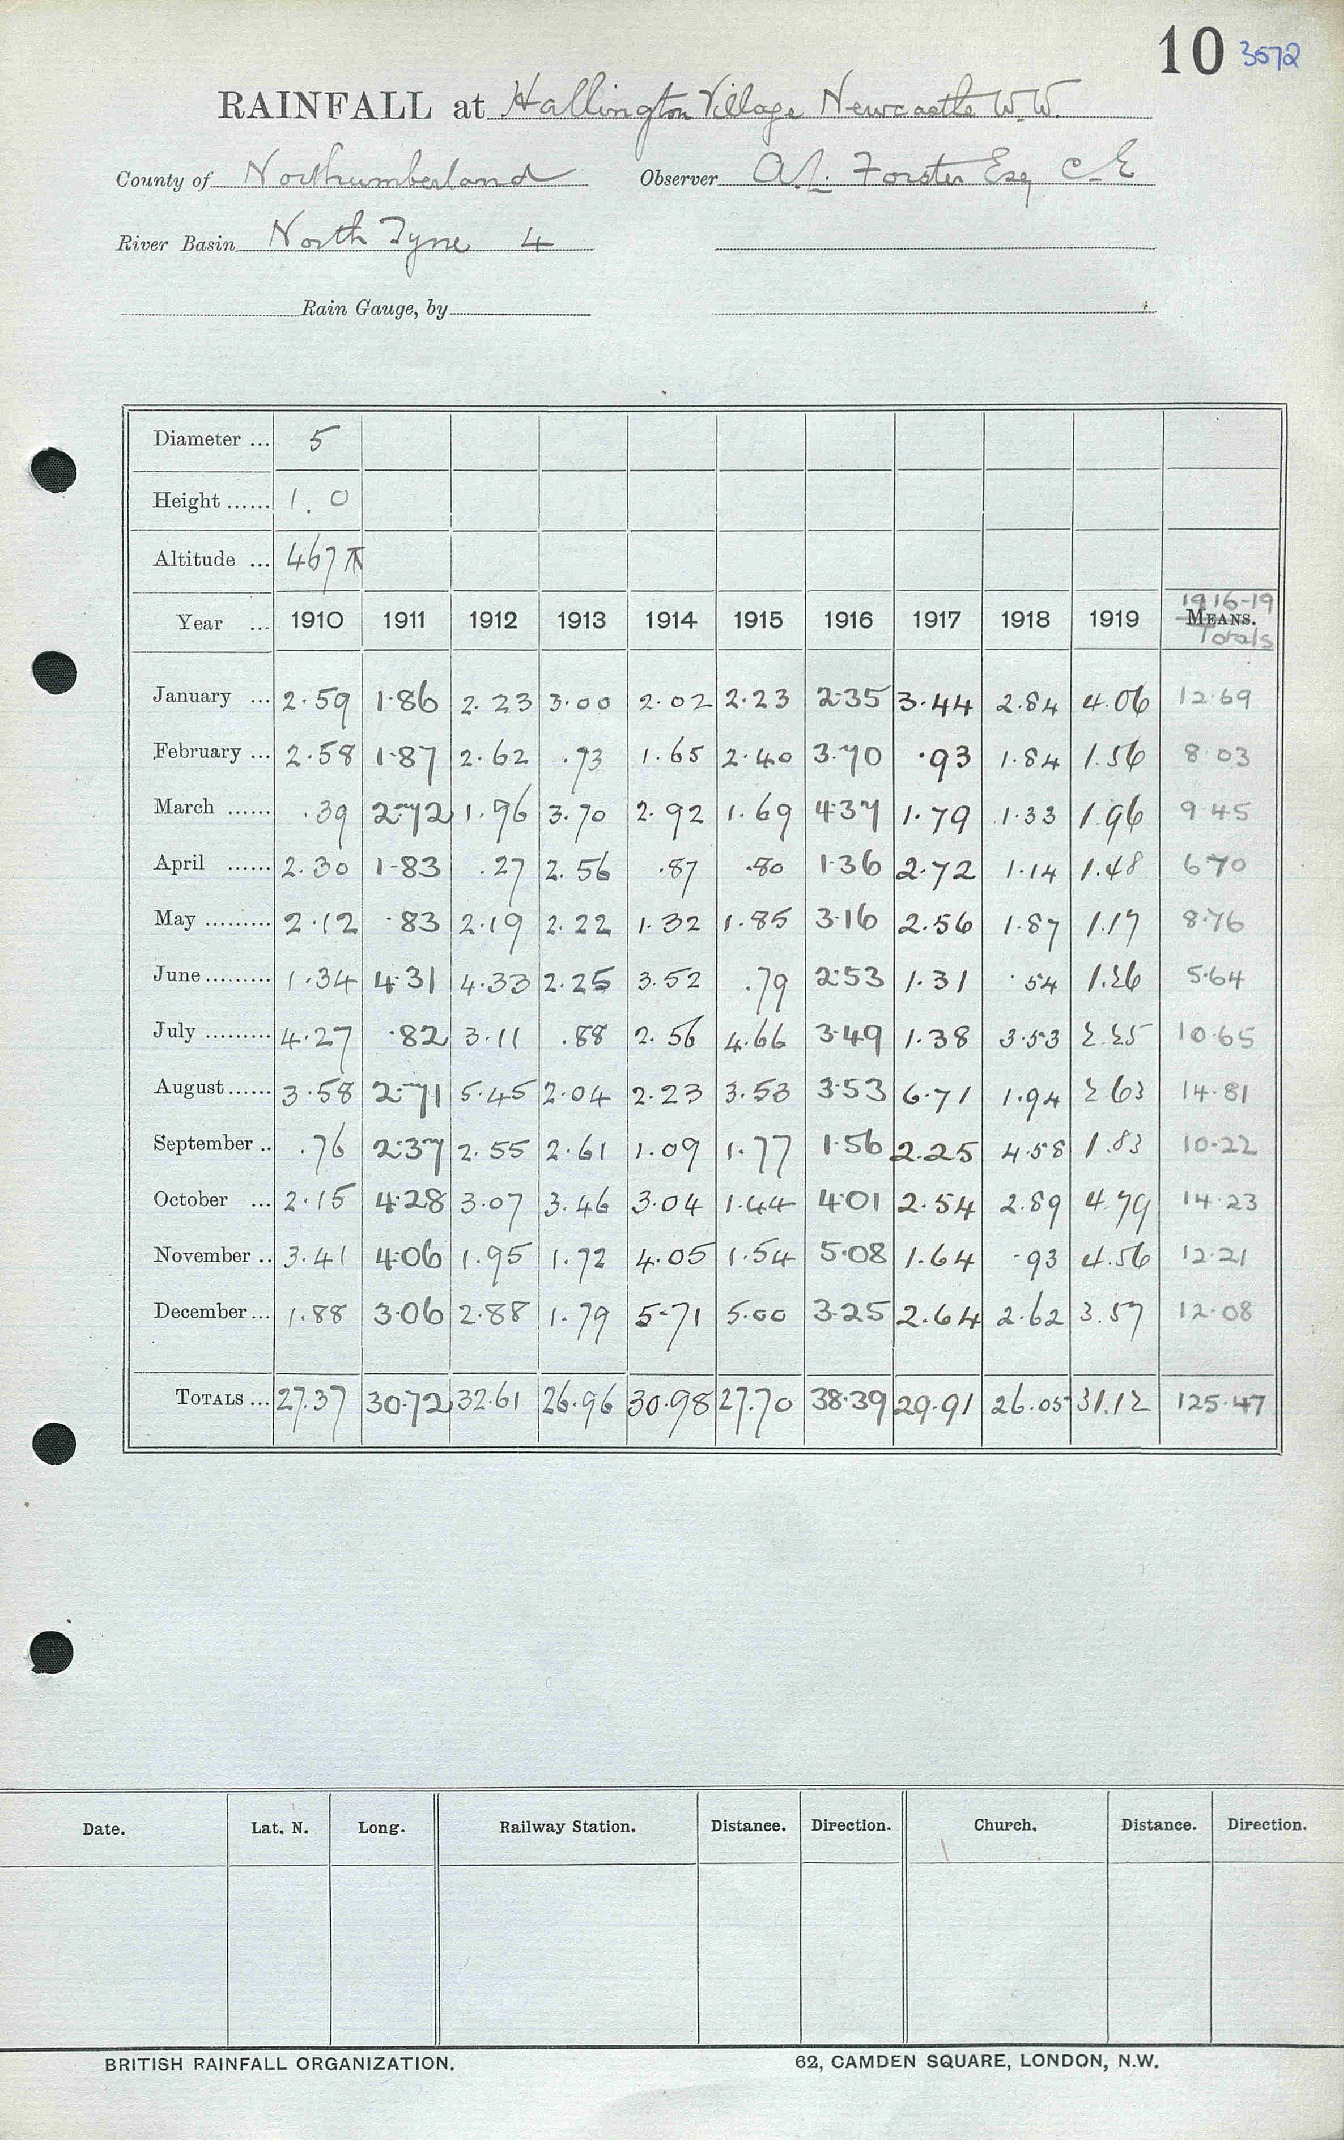 10 3572
RAINFALL at Hallington Village Newcastle W.W.
County of Northumberland Observer A.L. Forster Esq C.E
River Basin North Tyne 4
Rain Gauge, by
Diameter ... 5
Height ...... 1.0
Altitude ... 467
Year ... 1910 1911 1912 1913 1914 1915 1916 1917 1918 1919 1916-19 MEANS. Totals
January ... 2.59 1.86 2.23 3.00 2.02 2.23 2.35 3.44 2.84 4.06 12.69
February ... 2.58 1.87 2.62 .73 1.65 2.40 3.70 .93 1.84 1.56 8.03
March ...... .39 2.72 1.96 3.70 2.92 1.69 4.37 1.79 1.33 1.96 9.45
April ...... 2.30 1.83 .27 2.56 .87 .80 1.36 2.72 1.14 1.48 6.70
May ......... 2.12 .83 2.19 2.22 1.32 1.85 3.16 2.56 1.87 1.17 8.76
June ......... 1.34 4.31 4.33 2.25 3.52 .79 2.53 1.31 .54 1.26 5.64
July ......... 4.27 .82 3.11 .88 2.56 4.66 3.49 1.38 3.53 2.25 10.65
August ...... 3.58 2.71 5.45 2.04 2.23 3.53 3.53 6.71 1.94 2.63 14.81
September .. .76 2.37 2.55 2.61 1.09 1.77 1.56 2.25 4.58 1.83 10.22
October ... 2.15 4.28 3.07 3.46 3.04 1.44 4.01 2.54 2.89 4.79 14.23
November .. 3.41 4.06 1.95 1.72 4.05 1.54 5.08 1.64 .93 4.56 12.21
December ... 1.88 3.06 2.88 1.79 5.71 5.00 3.25 2.64 2.62 3.57 12.08
TOTALS ... 27.37 30.72 32.61 26.96 30.98 27.70 38.39 29.91 26.05 31.12 125.47
Date. Lat. N. Long. Railway Station. Distance. Direction. Church. Distance. Direction.
BRITISH RAINFALL ORGANIZATION. 62, CAMDEN SQUARE, LONDON, N.W.